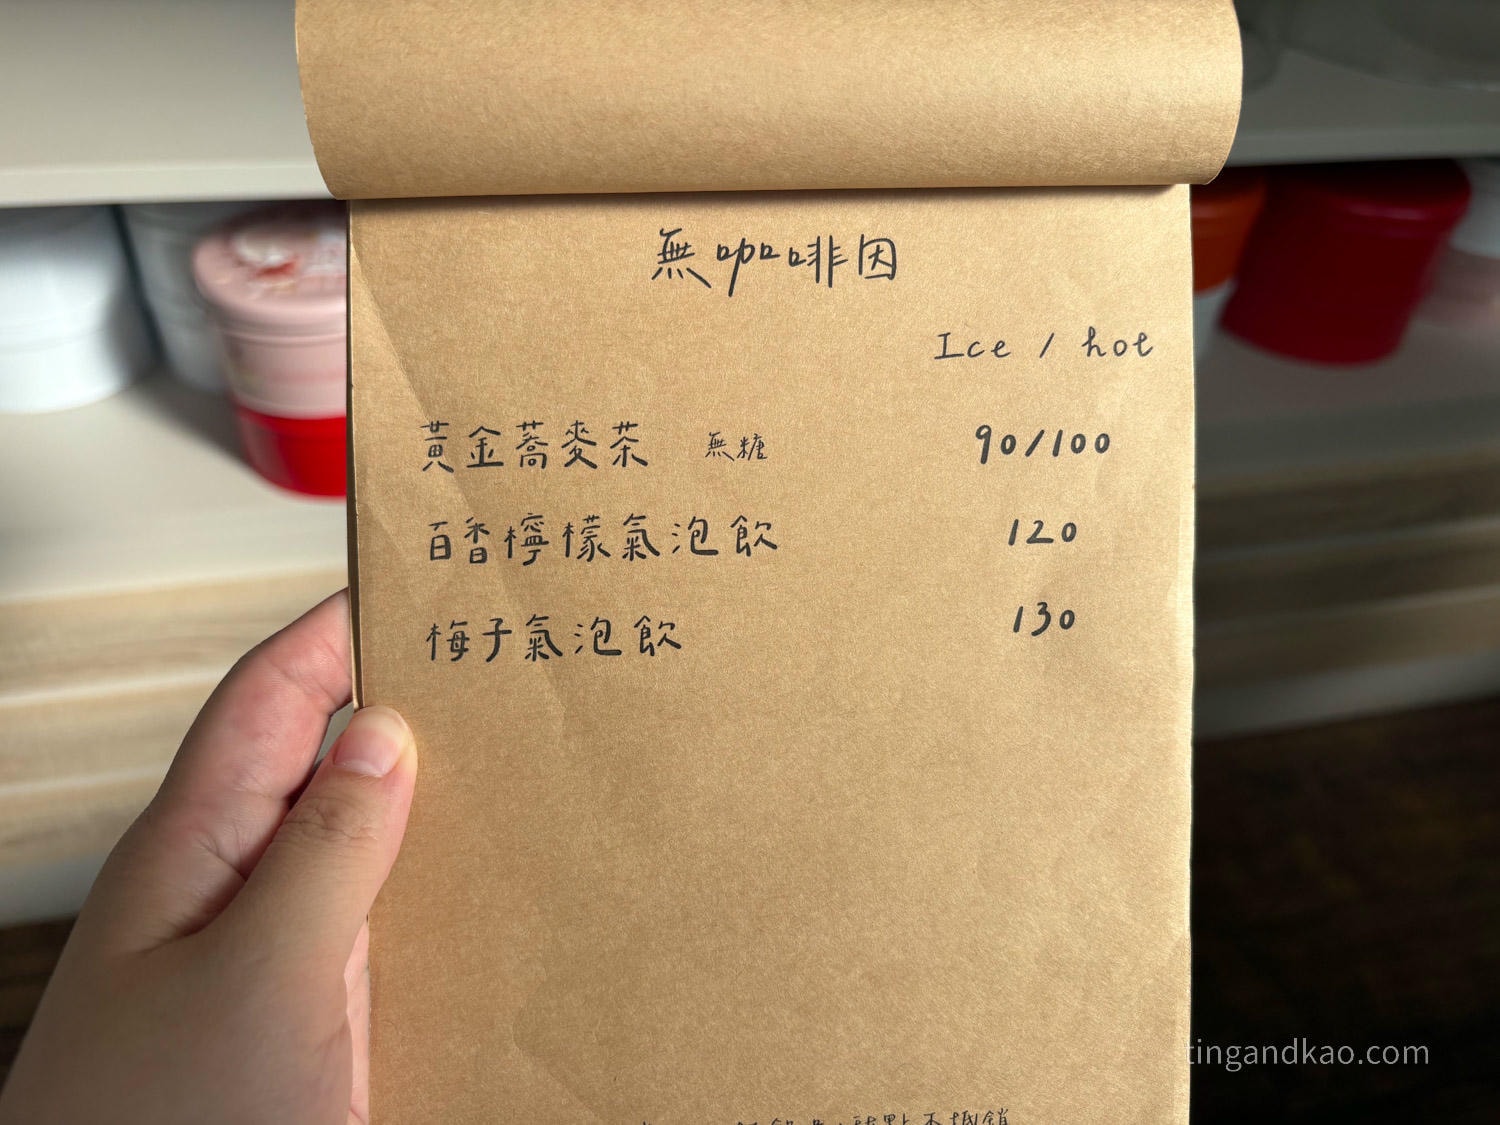 無咖啡因
Ice / hot
黃金蕎麥茶 無糖 90/100
百香檸檬氣泡飲 120
梅子氣泡飲 130
tingandkao.com